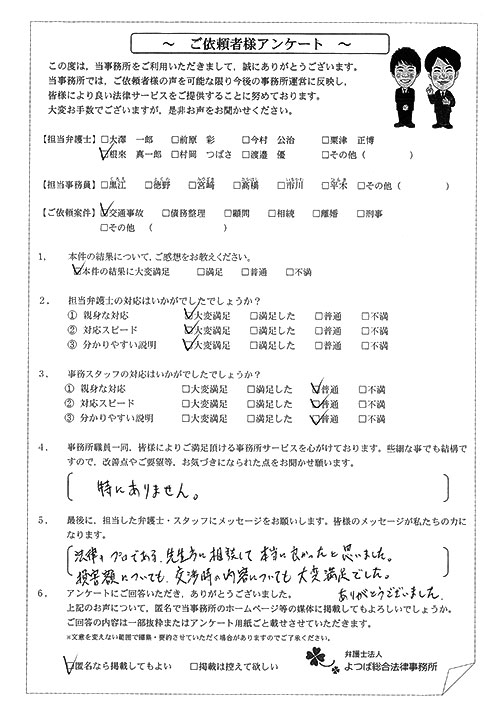 ～ ご依頼者様アンケート ～
この度は，当事務所をご利用いただきまして，誠にありがとうございます。
当事務所では，ご依頼者様の声を可能な限り今後の事務所運営に反映し，
皆様により良い法律サービスをご提供することに努めております。
大変お手数でございますが，是非お声をお聞かせください。
【担当弁護士】□大澤 一郎 □前原 彩 □今村 公治 □粟津 正博
☑根來 真一郎 □村岡 つばさ □渡邉 優 □その他（ ）
【担当事務員】□黒江 □徳野 □宮崎 □髙橋 □市川 □平木 □その他（ ）
【ご依頼案件】☑交通事故 □債務整理 □顧問 □相続 □離婚 □刑事
□その他 （ ）
1． 本件の結果について，ご感想をお教えください。
☑本件の結果に大変満足 □満足 □普通 □不満
2． 担当弁護士の対応はいかがでしたでしょうか？
① 親身な対応 ☑大変満足 □満足した □普通 □不満
② 対応スピード ☑大変満足 □満足した □普通 □不満
③ 分かりやすい説明 ☑大変満足 □満足した □普通 □不満
3． 事務スタッフの対応はいかがでしたでしょうか？
① 親身な対応 □大変満足 □満足した ☑普通 □不満
② 対応スピード □大変満足 □満足した ☑普通 □不満
③ 分かりやすい説明 □大変満足 □満足した ☑普通 □不満
4． 事務所職員一同，皆様によりご満足頂ける事務所サービスを心がけております。些細な事でも結構で
すので，改善点やご要望等，お気づきになられた点をお聞かせ願います。
特にありません。
5． 最後に，担当した弁護士・スタッフにメッセージをお願いします。皆様のメッセージが私たちの力に
なります。
法律のプロである、先生方に相談して本当に良かったと思いました。
損害額についても、交渉時の内容についても大変満足でした。
ありがとうございました。
6． アンケートにご回答いただき，ありがとうございました。
上記のお声について，匿名で当事務所のホームページ等の媒体に掲載してもよろしいでしょうか。
ご回答の内容は一部抜粋またはアンケート用紙ごと載せさせていただきます。
※文意を変えない範囲で編集・要約させていただく場合がありますのでご了承ください。
☑匿名なら掲載してもよい □掲載は控えて欲しい
弁護士法人
よつば総合法律事務所